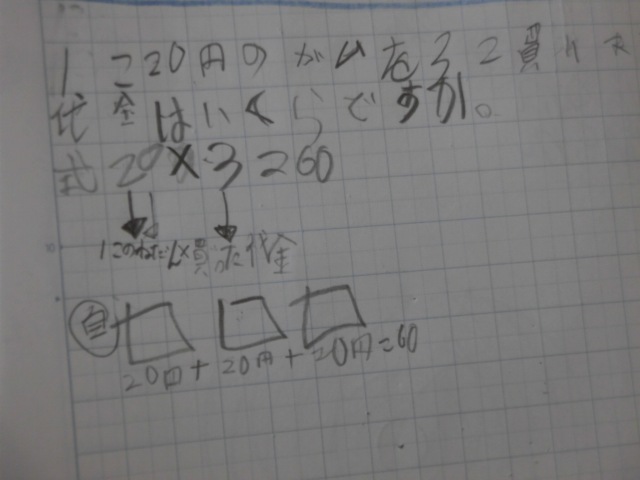 1こ20円のガムを3こ買います
代金はいくらですか。
式20×3=60
1このねだん×買った代金
自
20円+20円+20円=60